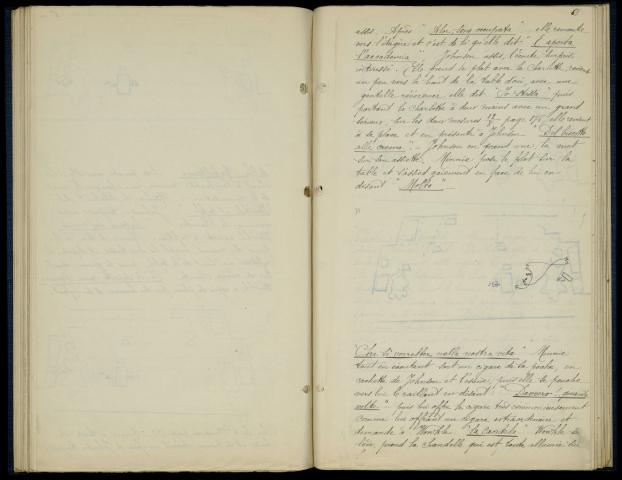 assis. Après "Alor, son occupata" elle remonte
vers l'étagère et c'est de là qu'elle dit "E aperta
l'accademia", Johnson assis, l'écoute toujours
intéressé. Elle prend le plat avec la Charlotte,
un peu vers le haut de la table d'où, avec une
gentille révérence elle dit "Io stessa" puis
portant la Charlotte à deux mains avec un grand
sérieux, sur les deux mesures 12/8 page 175, elle revient
à sa place et en présente à Johnson "Del biscotto
alla crema". Johnson en prend une, la met
sur son assiette. Minnie pose le plat sur la
table et s'assied gaiement en face de lui en
disant "Molto"
"Che si vorrebbe nella nostra vita" Minnie
tout en écoutant sort un cigare de la poche, en
cachette de Johnson et l'essuie, puis elle se penche
vers lui le raillant en disant: "Davvero, quante
volte". puis lui offre le cigare très
comme lui offrant un cigare extraordinaire et
demande à Wowkle "la candela" Wowkle se
lève, prend la chandelle qui est toute allumée